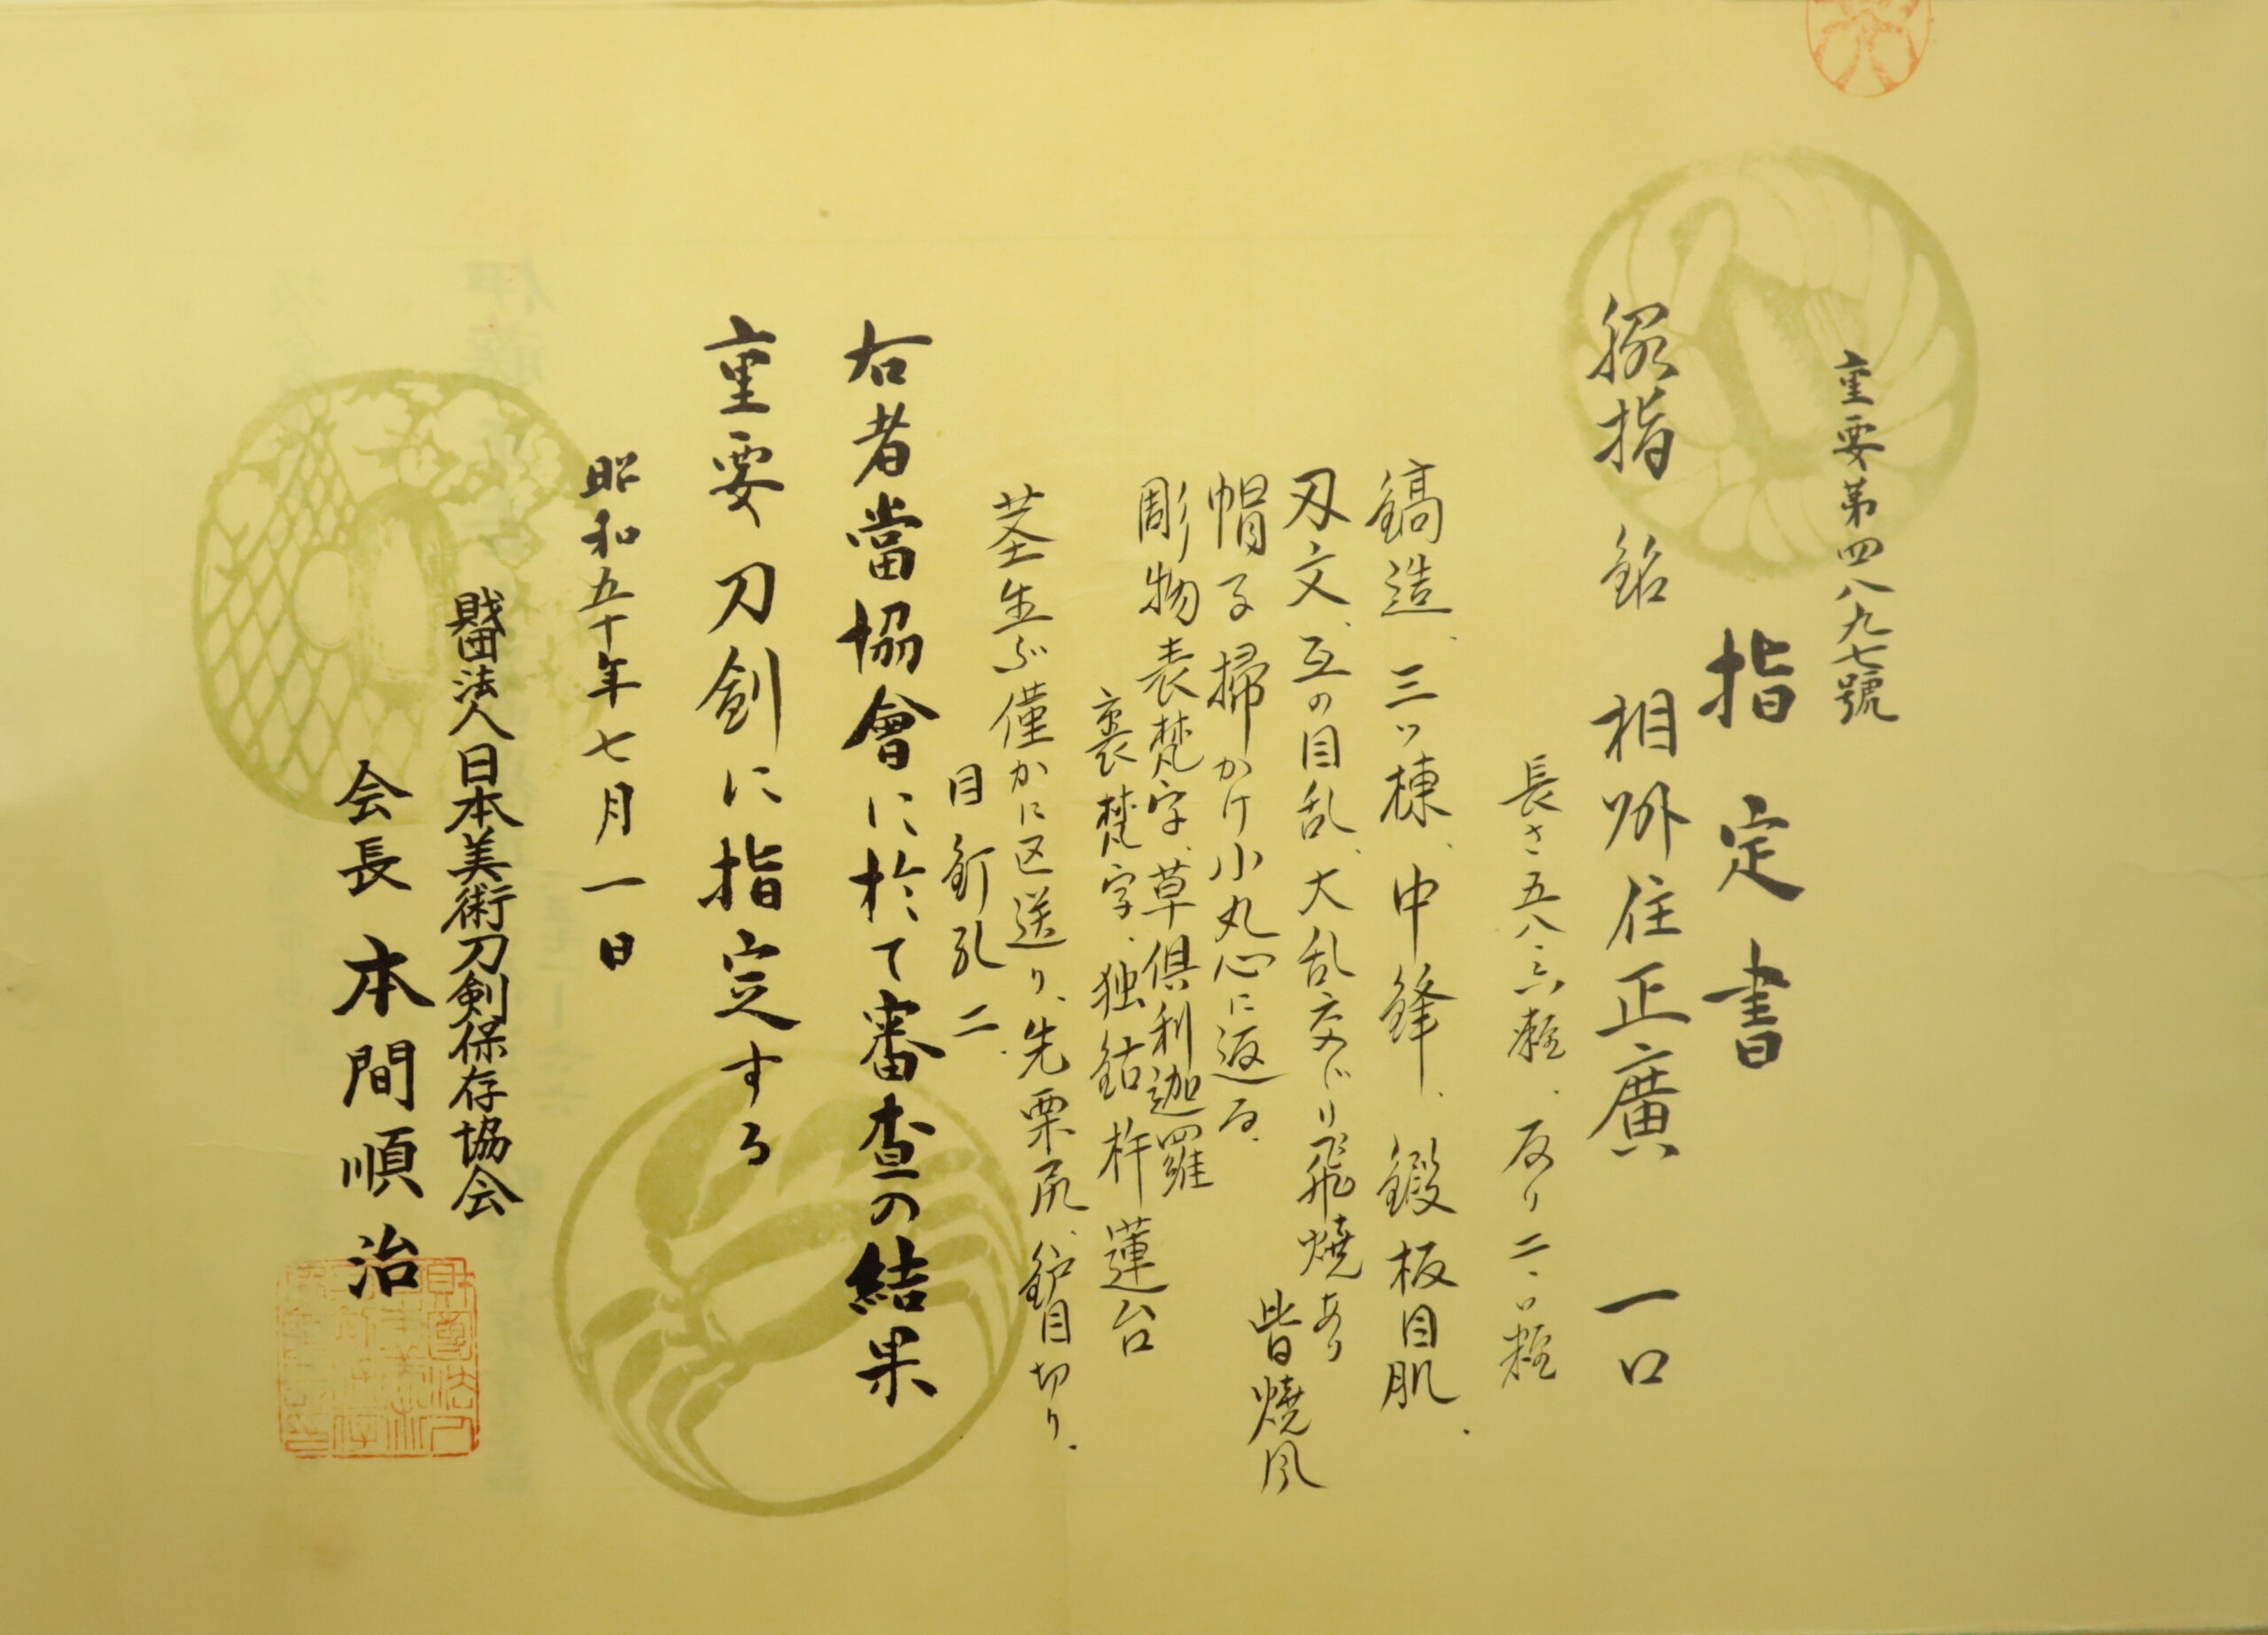 重要第四八九七號
指定書
脇指 銘 相州住正廣 一口
長さ五八・六糎、反り二・一糎
鎬造、三ッ棟、中鋒、鍛板目肌、
刃文、互の目乱、大乱交じり飛焼あり
皆焼風
帽子掃かけ小丸心に返る、
彫物表梵字、草倶利迦羅
裏梵字、独鈷杵蓮台
茎生ぶ僅かに区送り、先栗尻、鑢目切り、
目釘孔二、
右者當協會に於て審査の結果
重要刀剣に指定する
昭和五十年七月一日
財団法人日本美術刀剣保存協会
会長 本間順治